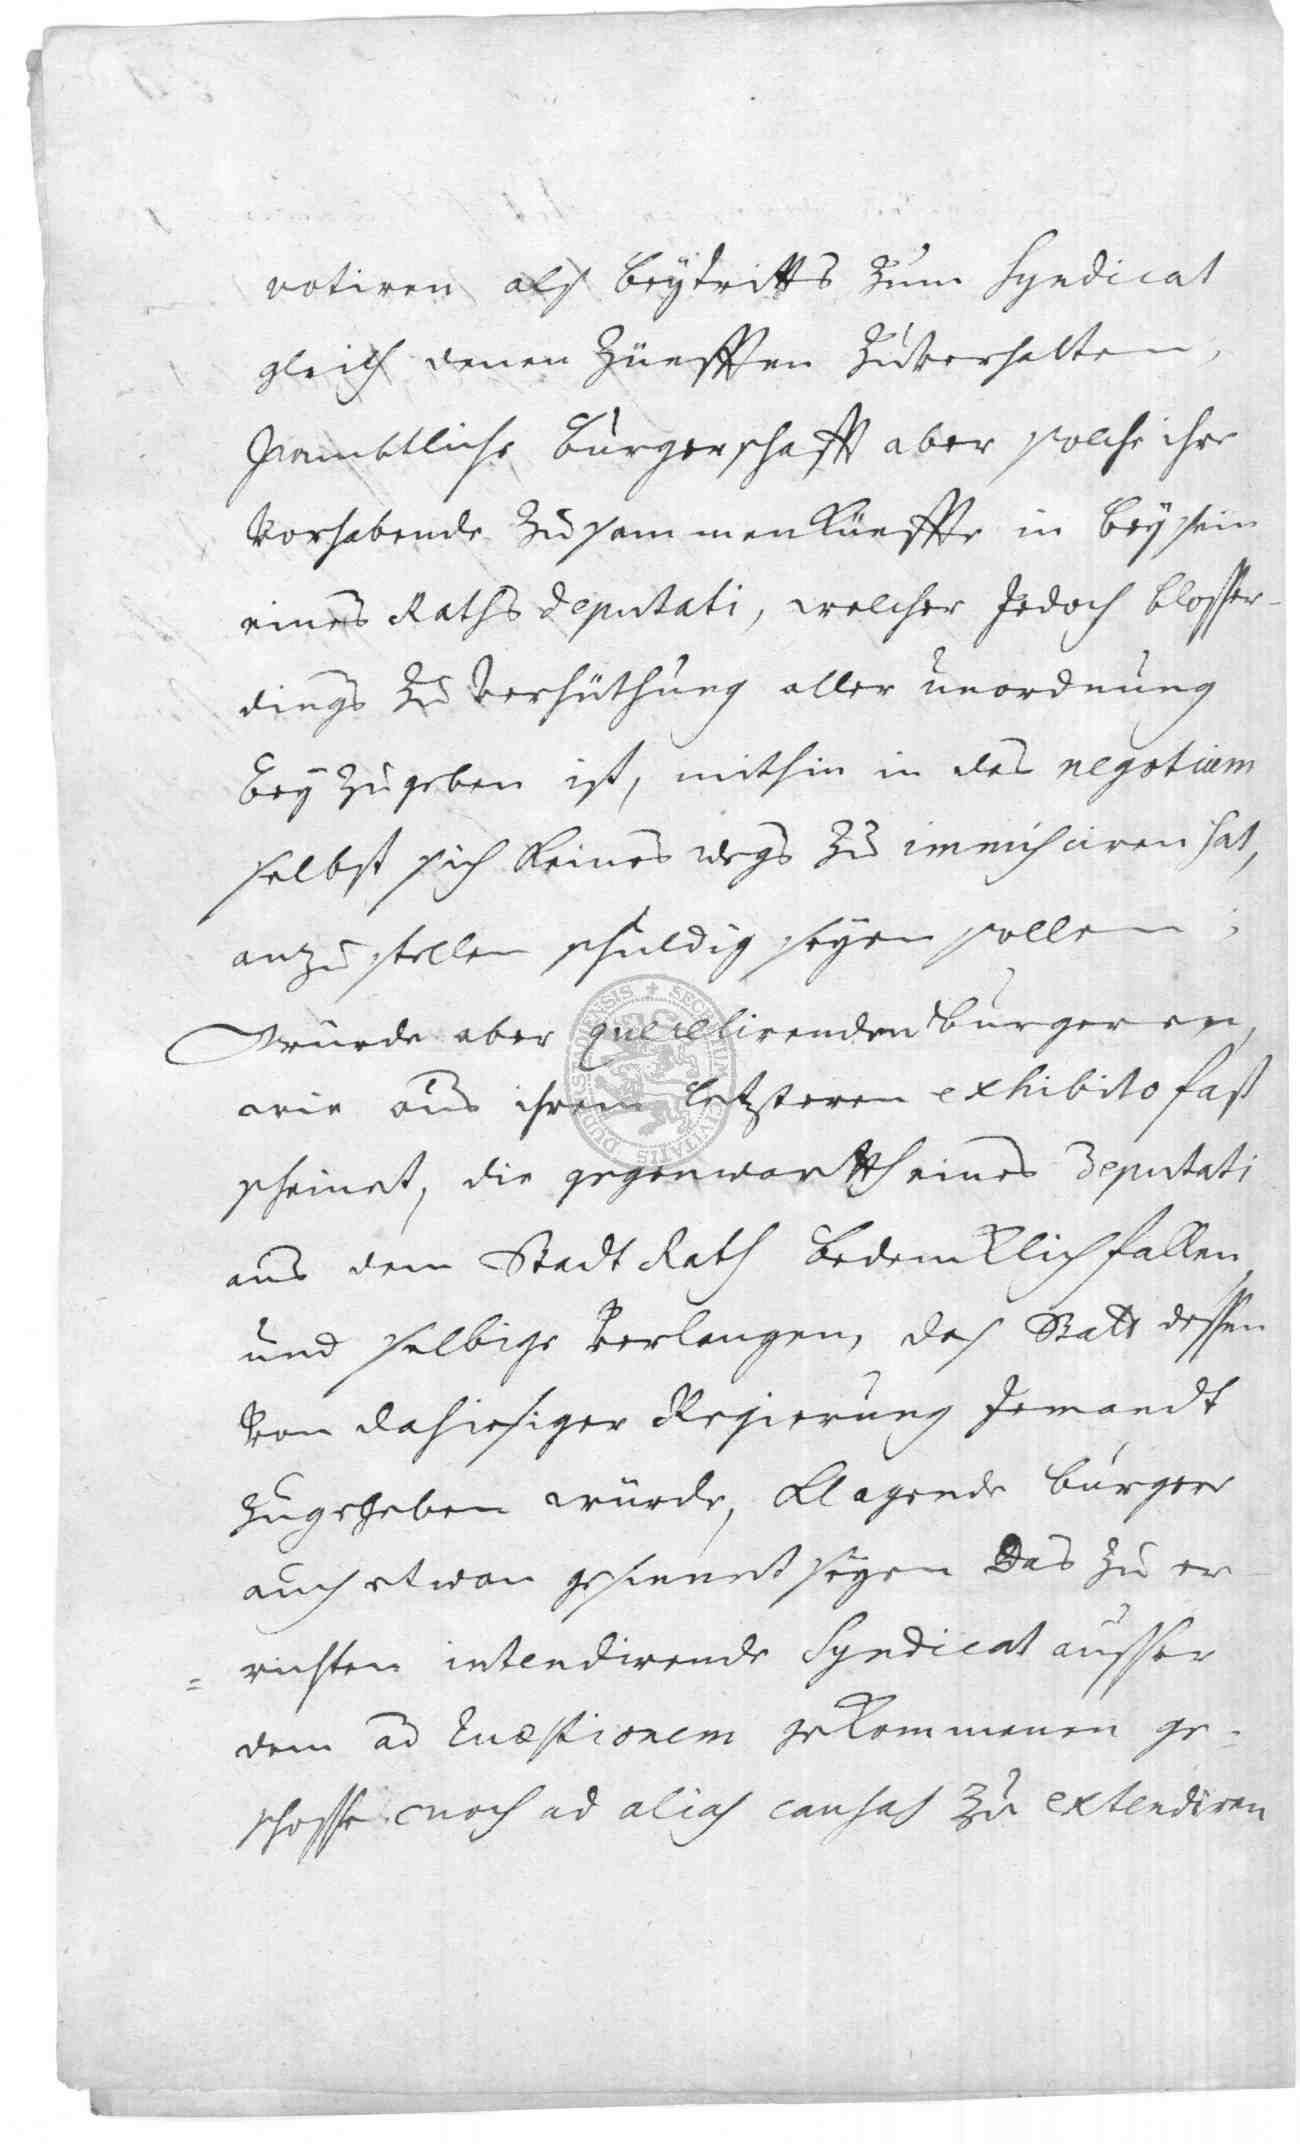 votiren als beytritts zum Syndicat
gleich denen Zünfften zu verhalten,
sambtliche burgerschafft aber solche ihre
vorhabende zusammenkünffte in beysein
eines Raths deputati, welcher jedoch blosser-
dings zu verhüthung aller unordnung
bey zu geben ist, mithin in das negotium
selbst sich keines wegs zu immisciren hat,
anzustellen schuldig seyen sollen;
Würde aber querelirenden burgeren,
wie aus ihrem letzteren exhibito fast
scheinet, die gegenwarth eines Deputati
aus dem Stadt Rath bedencklich fallen,
und selbige verlangen, das statt dessen
von dahiesiger Regierung jemandt
zugegeben würde, klagende burgere
auch etwan gesinnet seyen das zu er-
= richten intendirende Syndicat ausser
dem ad quæstionem gekommenen ge-
schosse noch ad alias causas zu extendiren
SECRETUM CIVITATIS DUDERSTODENSIS